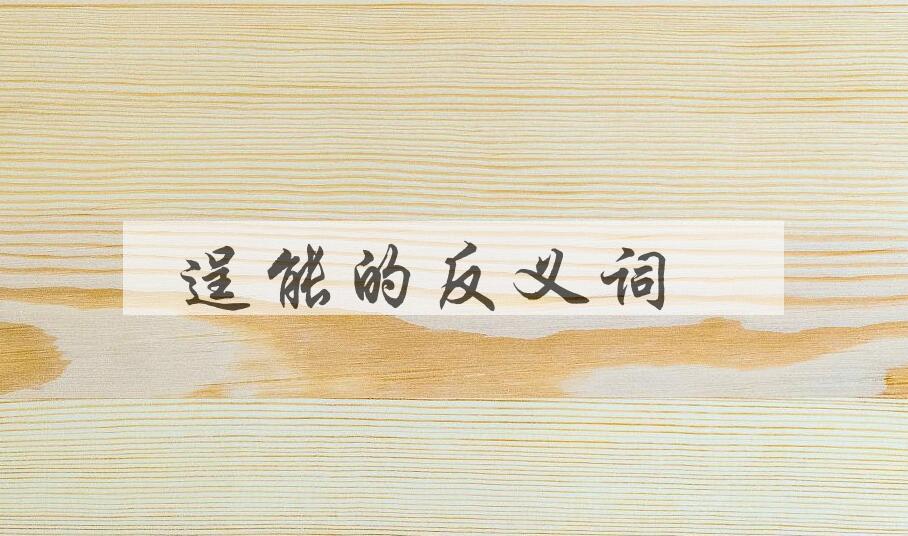 逞能的反义词